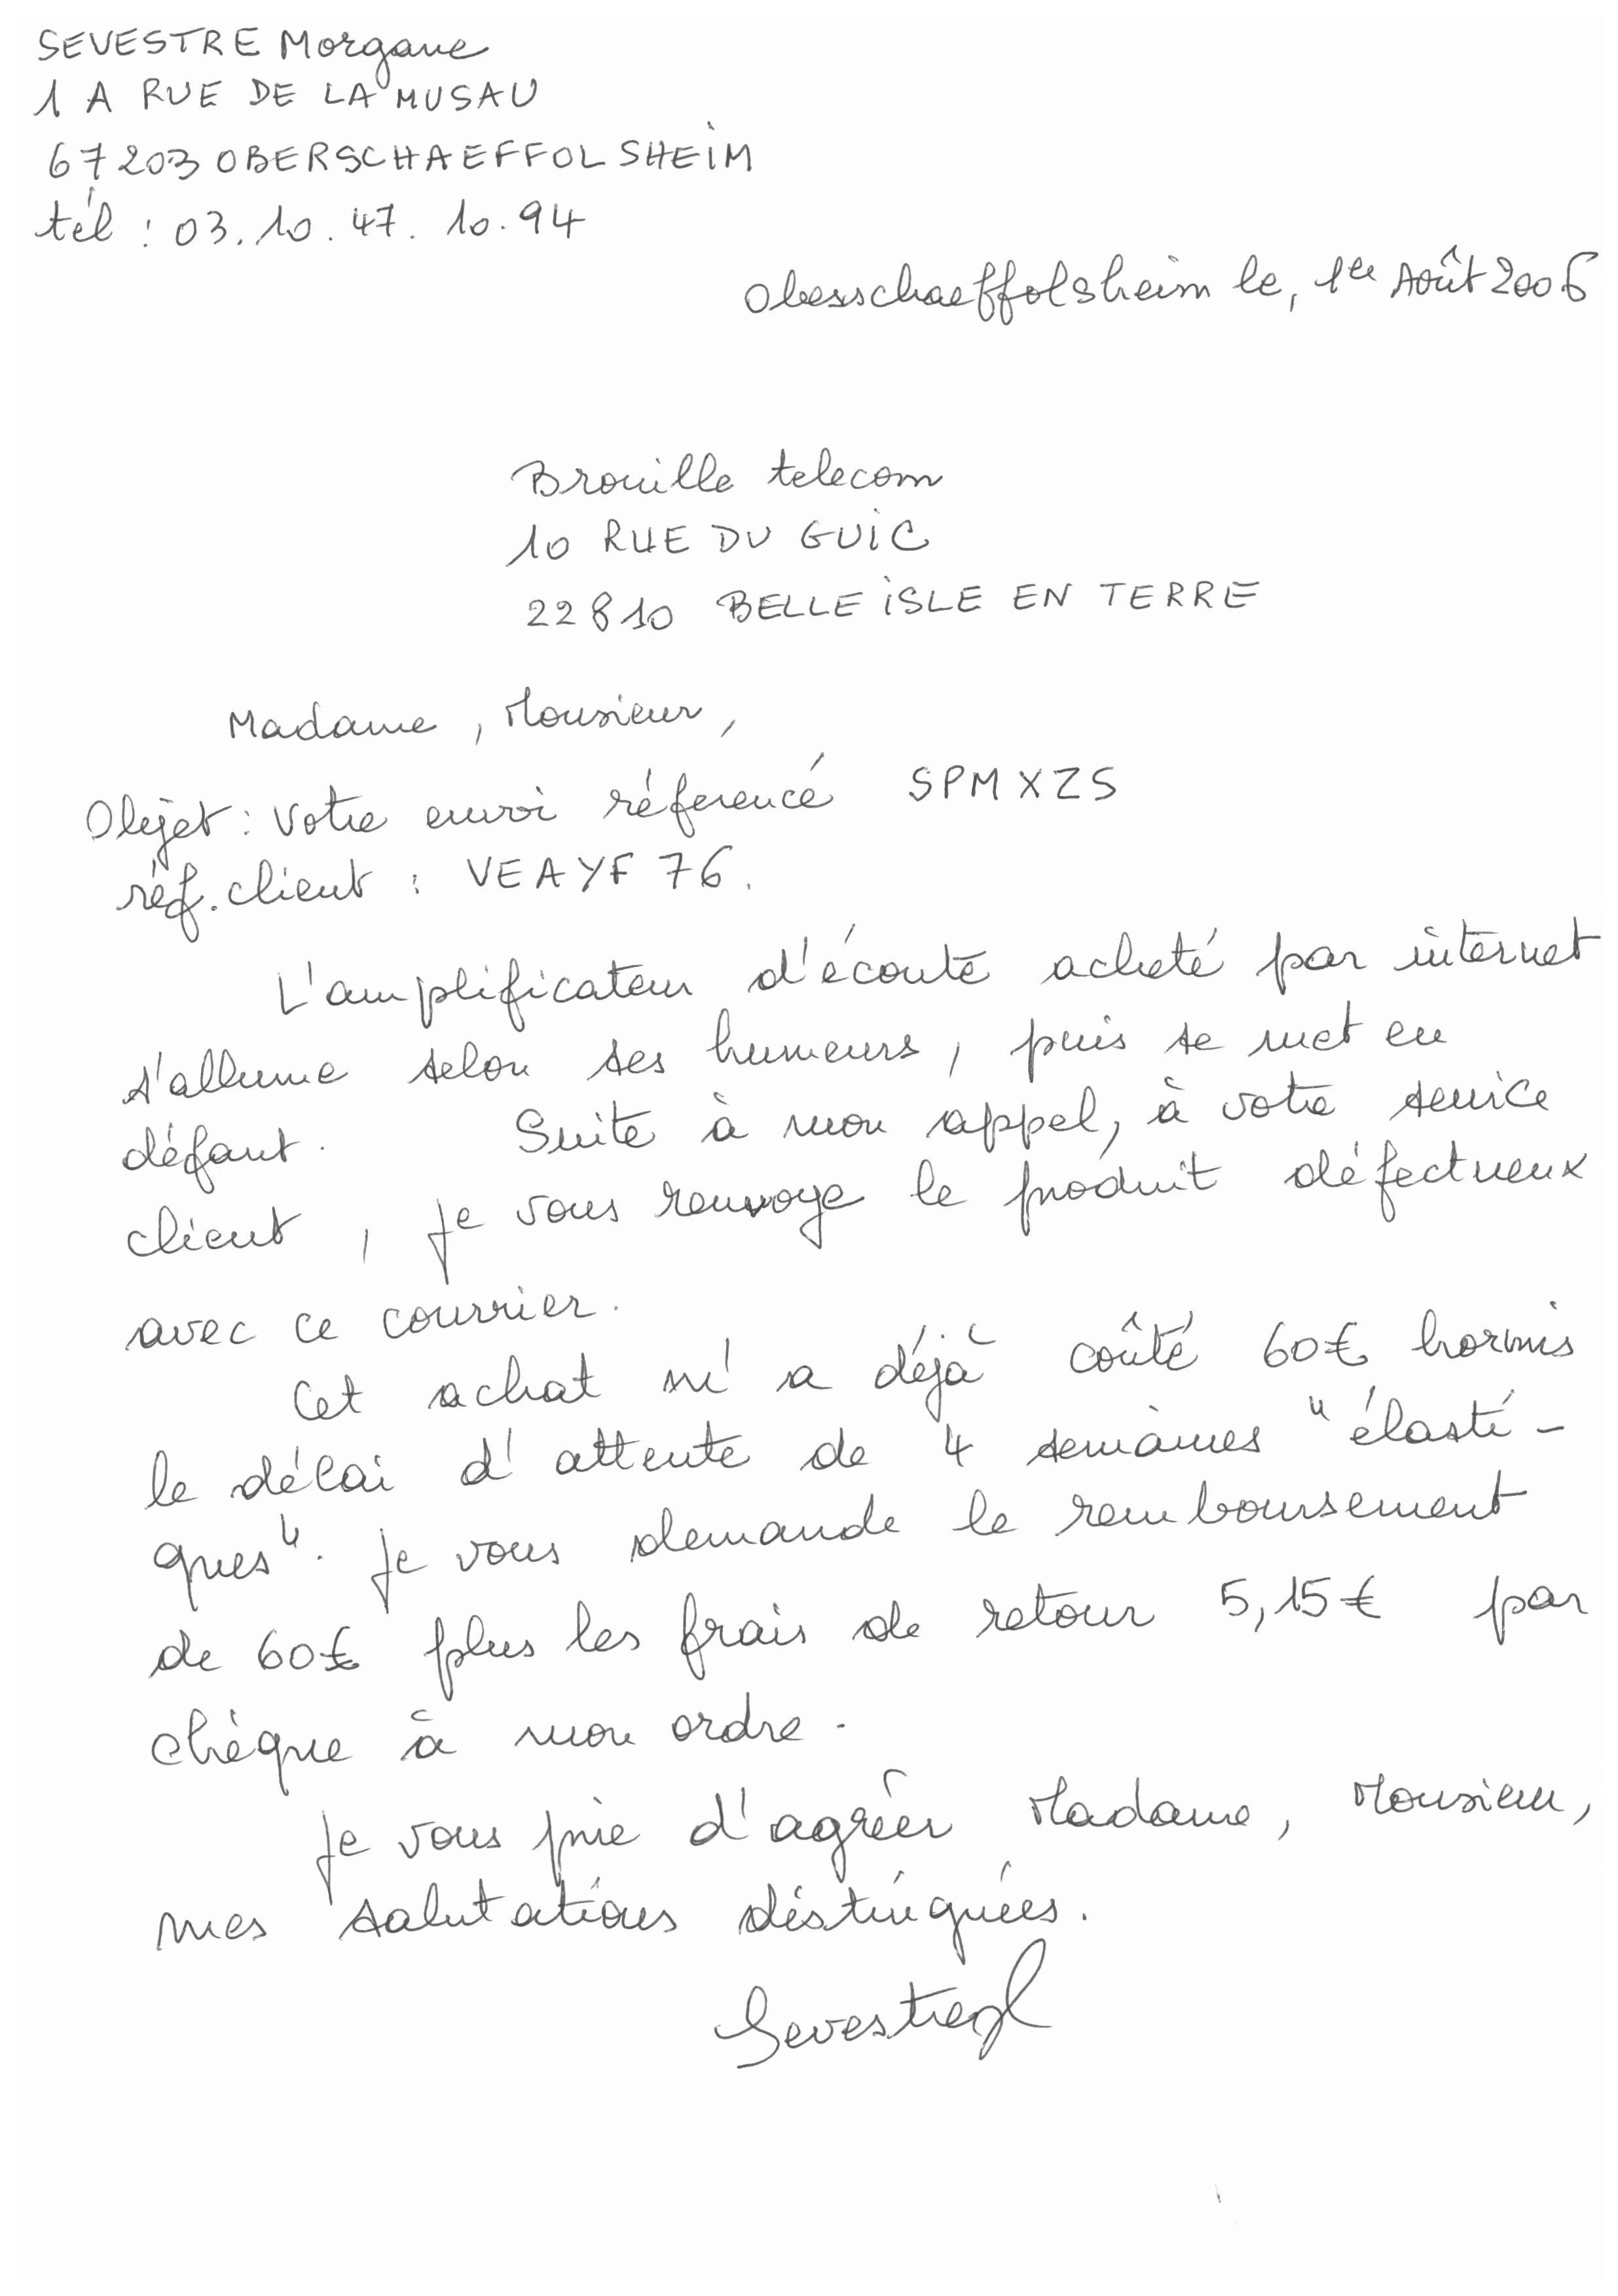 SEVESTRE Morgane
1 A RUE DE LA MUSAU
67203 OBERSCHAEFFOLSHEIM
tél : 03.10.47.10.94
Oberschaeffolsheim le, 1er Août 2006
Brouille telecom
10 RUE DU GUIC
22810 BELLE ISLE EN TERRE
Madame, Monsieur,
Objet : Votre envoi réferencé SPMXZS
réf. client : VEAYF76.
L'amplificateur d'écoute acheté par internet
s'allume selon ses humeurs, puis se met en
défaut. Suite à mon appel, à votre service
client, je vous renvoye le produit défectueux
avec ce courrier.
Cet achat m'a déjà coûté 60€ hormis
le délai d'attente de 4 semaines "élasti-
ques". Je vous demande le remboursement
de 60€ plus les frais de retour 5,15€ par
chèque à mon ordre.
Je vous prie d'agréer Madame, Monsieur,
mes salutations distinguées.
Sevestre